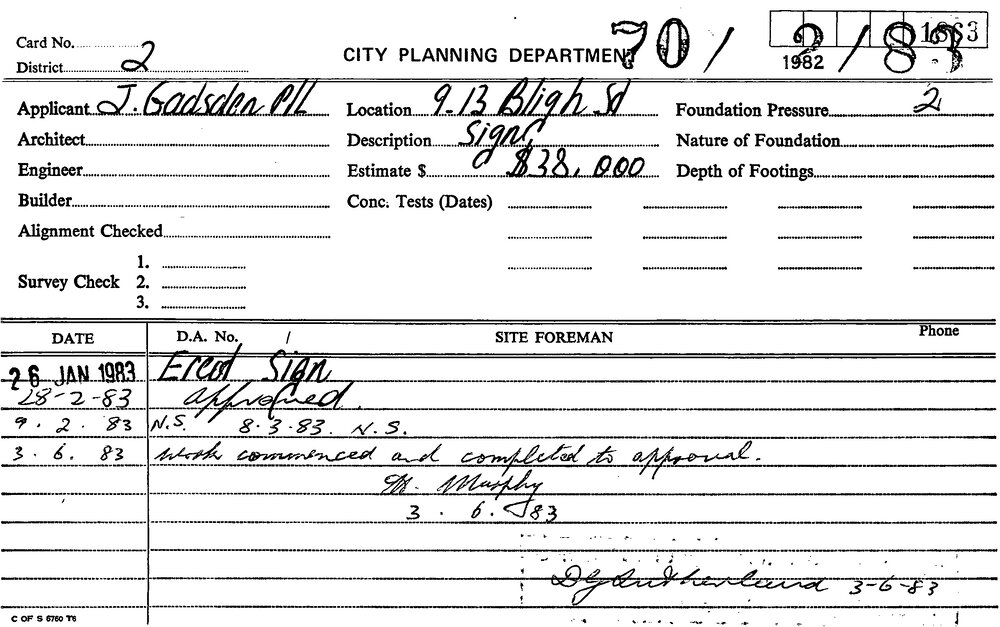 Card No.
District 2
CITY PLANNING DEPARTMENT
70/2/83
1982
Applicant J. Gadsden P/L
Location 9-13 Bligh St
Foundation Pressure 2
Architect
Description Signs
Nature of Foundation
Engineer
Estimate $ $38,000
Depth of Footings
Builder
Conc. Tests (Dates)
Alignment Checked
Survey Check
1.
2.
3.
DATE D.A. No. / SITE FOREMAN Phone
26 JAN 1983 Erect Sign
28-2-83 approved.
9.2.83 N.S. 8.3.83. N.S.
3.6.83 work commenced and completed to approval.
M. Murphy
3.6.83
DG Sutherland 3-6-83
C OF S 6760 T6